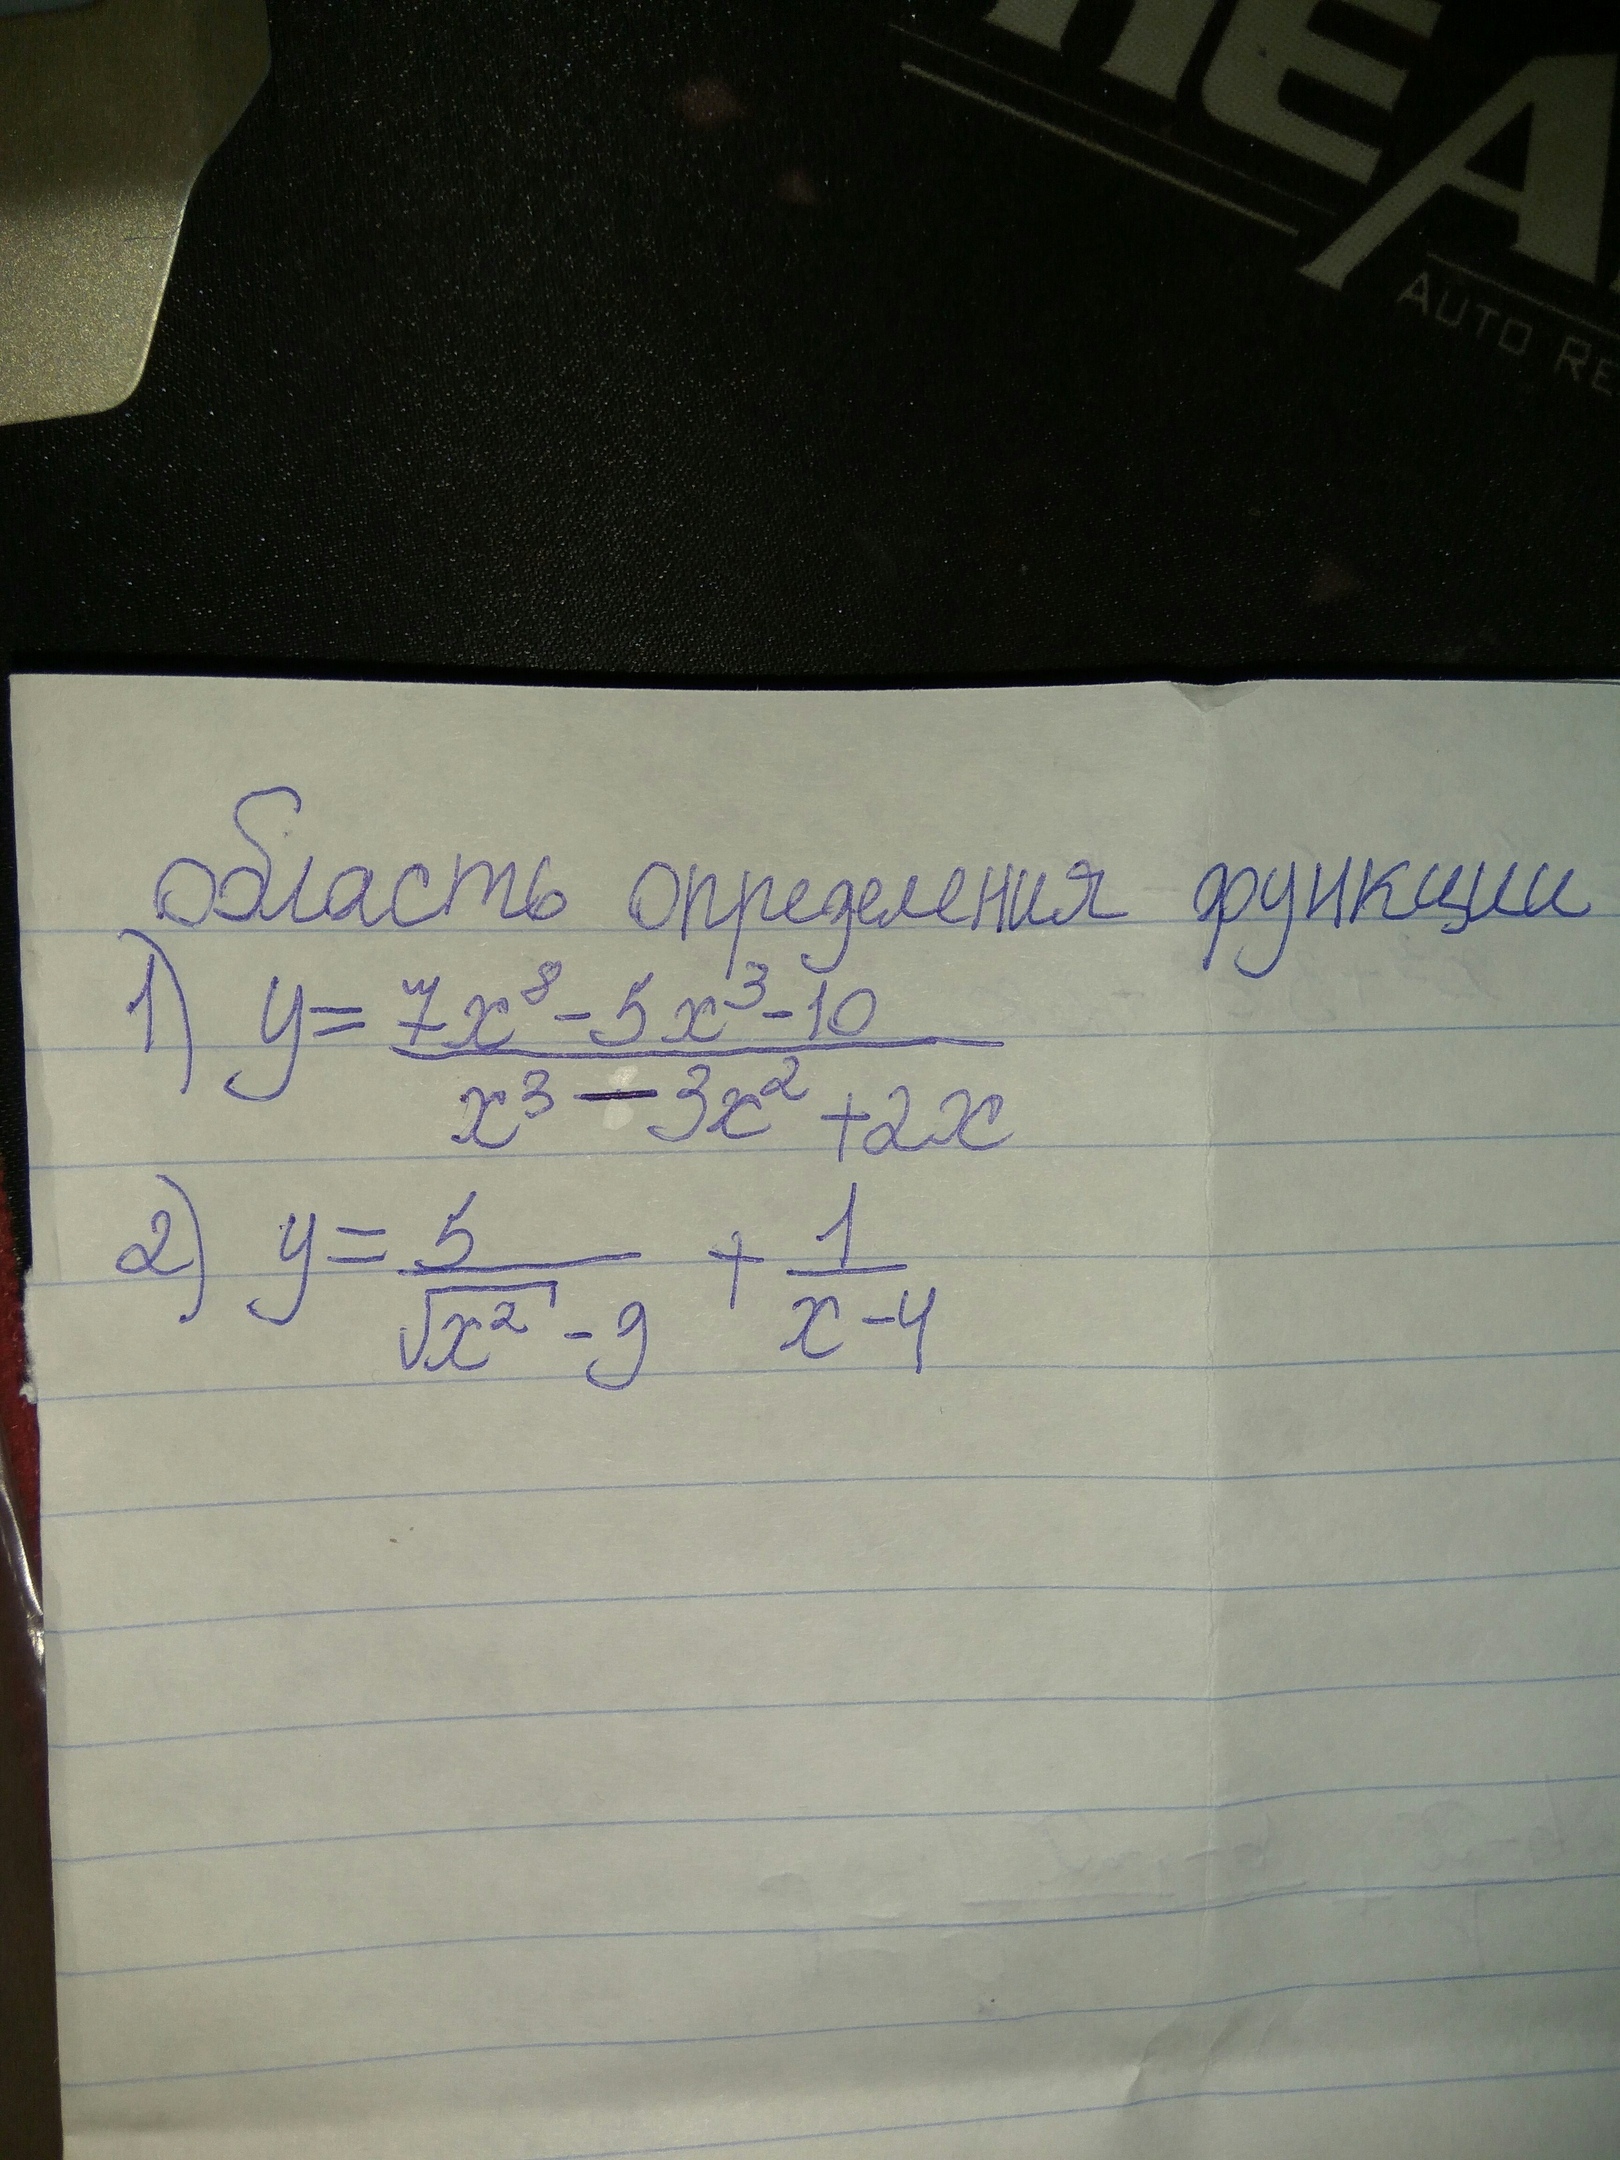 HEA
AUTO RE
область определения функции
1) y = (7x⁸ - 5x³ - 10) / (x³ - 3x² + 2x)
2) y = 5 / (√x² - 9) + 1 / (x - 4)